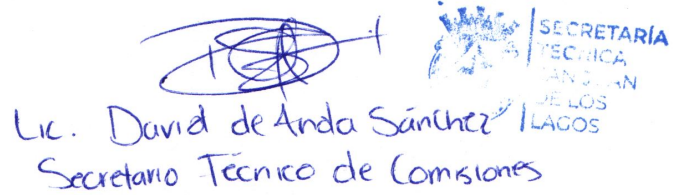 SECRETARÍA
TECNICA
SAN JUAN
DE LOS
LAGOS
Lic. David de Anda Sánchez
Secretario Técnico de Comisiones